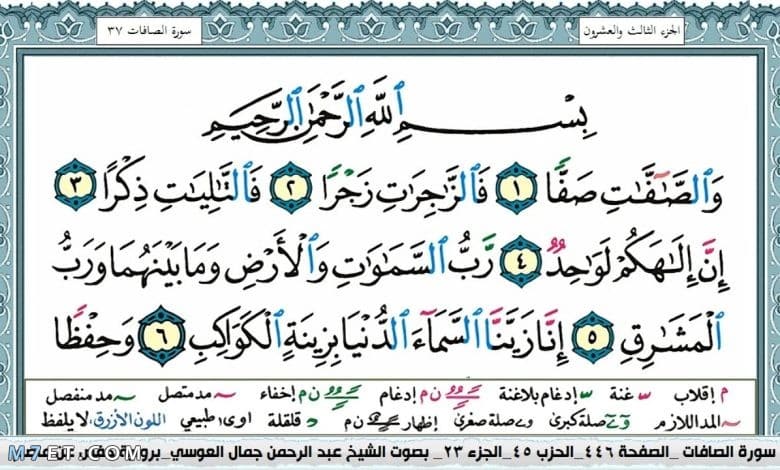 الجزء الثالث والعشرون
سورة الصافات ٣٧
بِسْمِ ٱللَّهِ ٱلرَّحْمَٰنِ ٱلرَّحِيمِ
وَٱلصَّٰٓفَّٰتِ صَفًّا ١ فَٱلزَّٰجِرَٰتِ زَجْرًا ٢ فَٱلتَّٰلِيَٰتِ ذِكْرًا ٣
إِنَّ إِلَٰهَكُمْ لَوَٰحِدٌ ٤ رَّبُّ ٱلسَّمَٰوَٰتِ وَٱلْأَرْضِ وَمَا بَيْنَهُمَا وَرَبُّ
ٱلْمَشَٰرِقِ ٥ إِنَّا زَيَّنَّا ٱلسَّمَآءَ ٱلدُّنْيَا بِزِينَةٍ ٱلْكَوَاكِبِ ٦ وَحِفْظًا
م إقلاب غنة إدغام بلاغنة ن م إدغام ن م إخفاء مد متصل مد منفصل
المد اللازم صلة كبرى صلة صغرى إظهار ن م قلقلة اوى طبيعي اللون الأزرق لا يلفظ
سورة الصافات _الصفحة ٤٤٦_الحزب ٤٥_الجزء ٢٣_ بصوت الشيخ عبد الرحمن جمال العوسي_برواية حفص عن عاصم
M7ET.COM